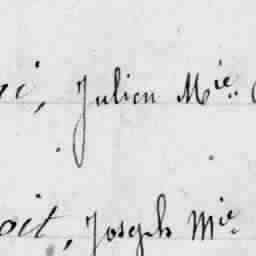 Julien Mie.
oit, Joseph Mie.